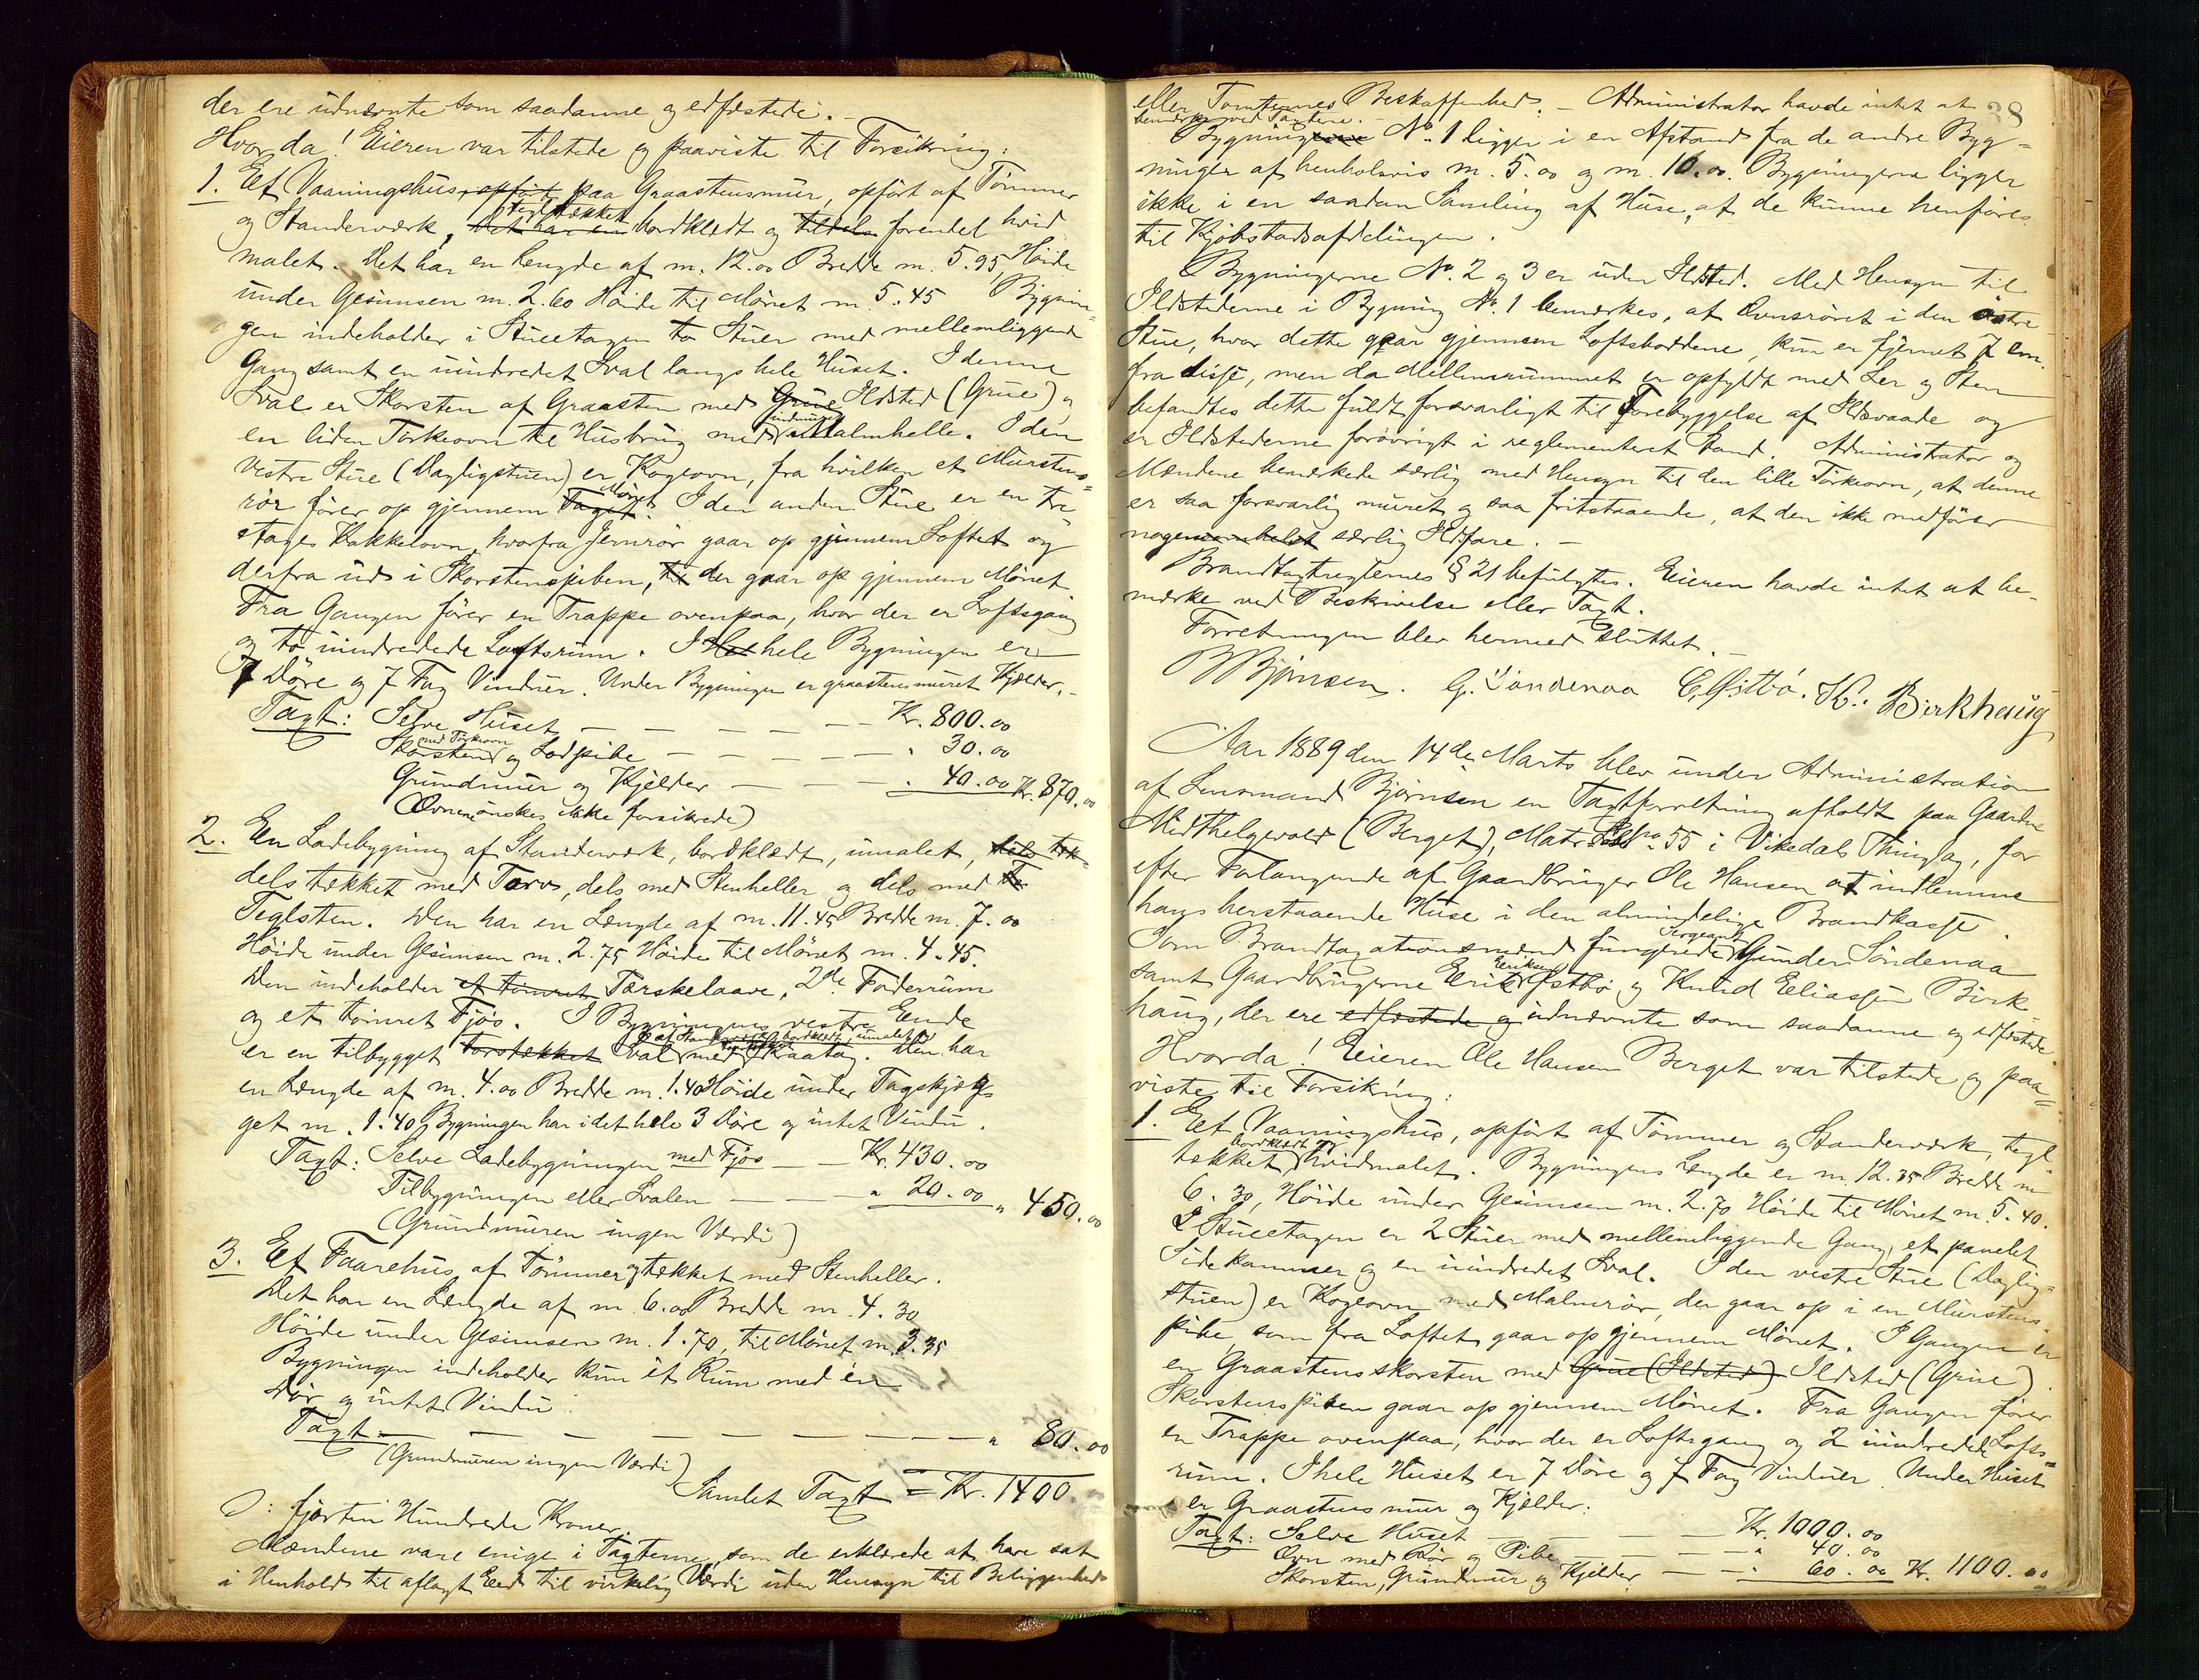 der ere udnævnte som saadanne og edfæstede. —
Hvorda! Eieren var tilstede og paaviste til Forsikring:
1. Et Vaaningshus, opført paa Graastensmur, opført af Tømmer
og Standerværk, tegltækket bordklædt og tildels forendel hvid
malet. Det har en Længde af m. 12.00 Bredde m. 5.95, Høide
under Gesimsen m. 2.60 Høide til Mønet m. 5.45 Bygnin-
gen indeholder i Stueetagen to Stuer med mellemliggende
Gang samt en uindredet Sval langs hele Huset. I denne
Sval er Skorsten af Graasten med Grue Ildsted (Grue) og
en liden Tørkeovn til Husbrug med indmuret Malmhelle. I den
vestre Stue (Dagligstuen) er Kogeovn, fra hvilken et Murstens-
rør fører op gjennem Taget Mønet. I den anden Stue er en tre
etages Kakkelovn, hvorfra Jernrør gaar op gjennem Loftet og
derfra ud i Skorstenspiben, der gaar op gjennem Mønet.
Fra Gangen fører en Trappe ovenpaa, hvor der er Loftsgang
og to uindredede Loftsrum. I hele Bygningen er
7 Døre og 7 Fag Vinduer. Under Bygningen er graastensmuret Kjelder. -
Taxt: Selve Huset — — — — Kr. 800.00
Skorsten med Tørkeovn og Lodpibe — — — — " 30.00
Grundmur og Kjelder — — — " 40.00 Kr. 870.00
(Ovnene ønskes ikke forsikrede)
2. En Ladebygning af Standerværk, bordklædt, umalet,
dels tækket med Torv, dels med Stenheller og dels med
Teglsten. Den har en Længde af m. 11.45 Bredde m. 7.00
Høide under Gesimsen m. 2.75 Høide til Mønet m. 4.45.
Den indeholder et tømret Tærskelaave, 2de Foderrum
og et tømret Fjøs. I Bygningens vestre Ende
er en tilbygget torvtækket Sval af Standerværk, bordklædt, umalet med Skraatag. Den har
en Længde af m. 4.00 Bredde m. 1.40 Høide under Tagskjæg-
get m. 1.40. Bygningen har i det hele 3 Døre og intet Vindu.
Taxt: Selve Ladebygningen med Fjøs — — Kr. 430.00
Tilbygningen eller Svalen — — — " 20.00 " 450.00
(Grundmuren ingen Værdi)
3. Et Faarehus af Tømmer og tækket med Stenheller.
Det har en Længde af m. 6.00 Bredde m. 4.30
Høide under Gesimsen m. 1.70, til Mønet m. 3.35
Bygningen indeholder kun ét Rum med én
Dør og intet Vindu.
Taxt — — — — — — — — " 80.00
(Grundmuren ingen Værdi)
Samlet Taxt = Kr. 1400.
Ɔ: fjorten Hundrede Kroner.
Mændene vare enige i Taxterne, som de erklærede at have sat
i Henhold til aflagt Eed til virkelig Værdi uden Hensyn til Beliggenhed
38
eller Tomternes Beskaffenhed. — Administrator havde intet at
bemærke ved Taxterne. —
Bygningerne No. 1 ligger i en Afstand fra de andre Byg-
ninger af henholdsvis m. 5.00 og m. 16.00. Bygningerne ligger
ikke i en saadan Samling af Huse, at de kunne henføres
til Kjøbstadsafdelingen.
Bygningerne No. 2 og 3 er uden Ildsted. Med Hensyn til
Ildstederne i Bygning No. 1 bemærkes, at Ovnsrøret i den østre
Stue, hvor dette gaar gjennem Loftsbordene, kun er fjernet 7 cm.
fra disse, men da Mellemrummet er opfyldt med Ler og Sten
befandtes dette fuldt forsvarligt til Forebyggelse af Ildsvaade og
er Ildstederne forøvrigt i reglementeret Stand. Administrator og
Mændene bemærkede særlig med Hensyn til den lille Tørkeovn, at denne
er saa forsvarlig muret og saa fritstaaende, at den ikke medfører
nogensomhelst særlig Ildfare. —
Brandtaxtreglernes § 21 befulgtes. Eieren havde intet at be-
mærke ved Beskrivelse eller Taxt.
Forretningen blev hermed sluttet. —
Bjørnsen. G. Søndenaa E. Østbø. K. Birkhaug
Aar 1889 den 14de Marts blev under Administration
af Lensmand Bjørnsen en Taxtforretning afholdt paa Gaarden
Midthelgevold (Berget), Matr. No 55 i Vikedals Thinglag, for
efter Forlangende af Gaardbruger Ole Hansen at indlemme
hans herstaaende Huse i den almindelige Brandkasse.
Som Brandtaxationsmænd fungerede Sergeant Gunder Søndenaa
samt Gaardbrugerne Erik Eriksen Østbø og Knud Eliassen Birk-
haug, der ere edfæstede og udnævnte som saadanne og edfæstede.
Hvorda! Eieren Ole Hansen Berget var tilstede og paa-
viste til Forsikring:
1. Et Vaaningshus, opført af Tømmer og Standerværk, tegl-
tækket, bordklædt og hvidmalet. Bygningens Længde er m. 12.35 Bredde m
6.30, Høide under Gesimsen m. 2.70 Høide til Mønet m. 5.40.
I Stueetagen er 2 Stuer med mellemliggende Gang, et panelet
Sidekammer og en uindredet Sval. I den vestre Stue (Daglig-
stuen) er Kogeovn med Malmrør, der gaar op i en Murstens-
pibe, som fra Loftet gaar op gjennem Mønet. I Gangen er
en Graastensskorsten med Grue (Ildsted) Ildsted (Grue).
Skorstenspiben gaar op gjennem Mønet. Fra Gangen fører
en Trappe ovenpaa, hvor der er Loftsgang og 2 uindredede Lofts-
rum. I hele Huset er 7 Døre og 7 Fag Vinduer. Under Huset
er Graastensmur og Kjelder:
Taxt: Selve Huset — — — Kr. 1000.00
Ovn med Rør og Pibe — — — " 40.00
Skorsten, Grundmur og Kjelder — — " 60.00 Kr. 1100.00